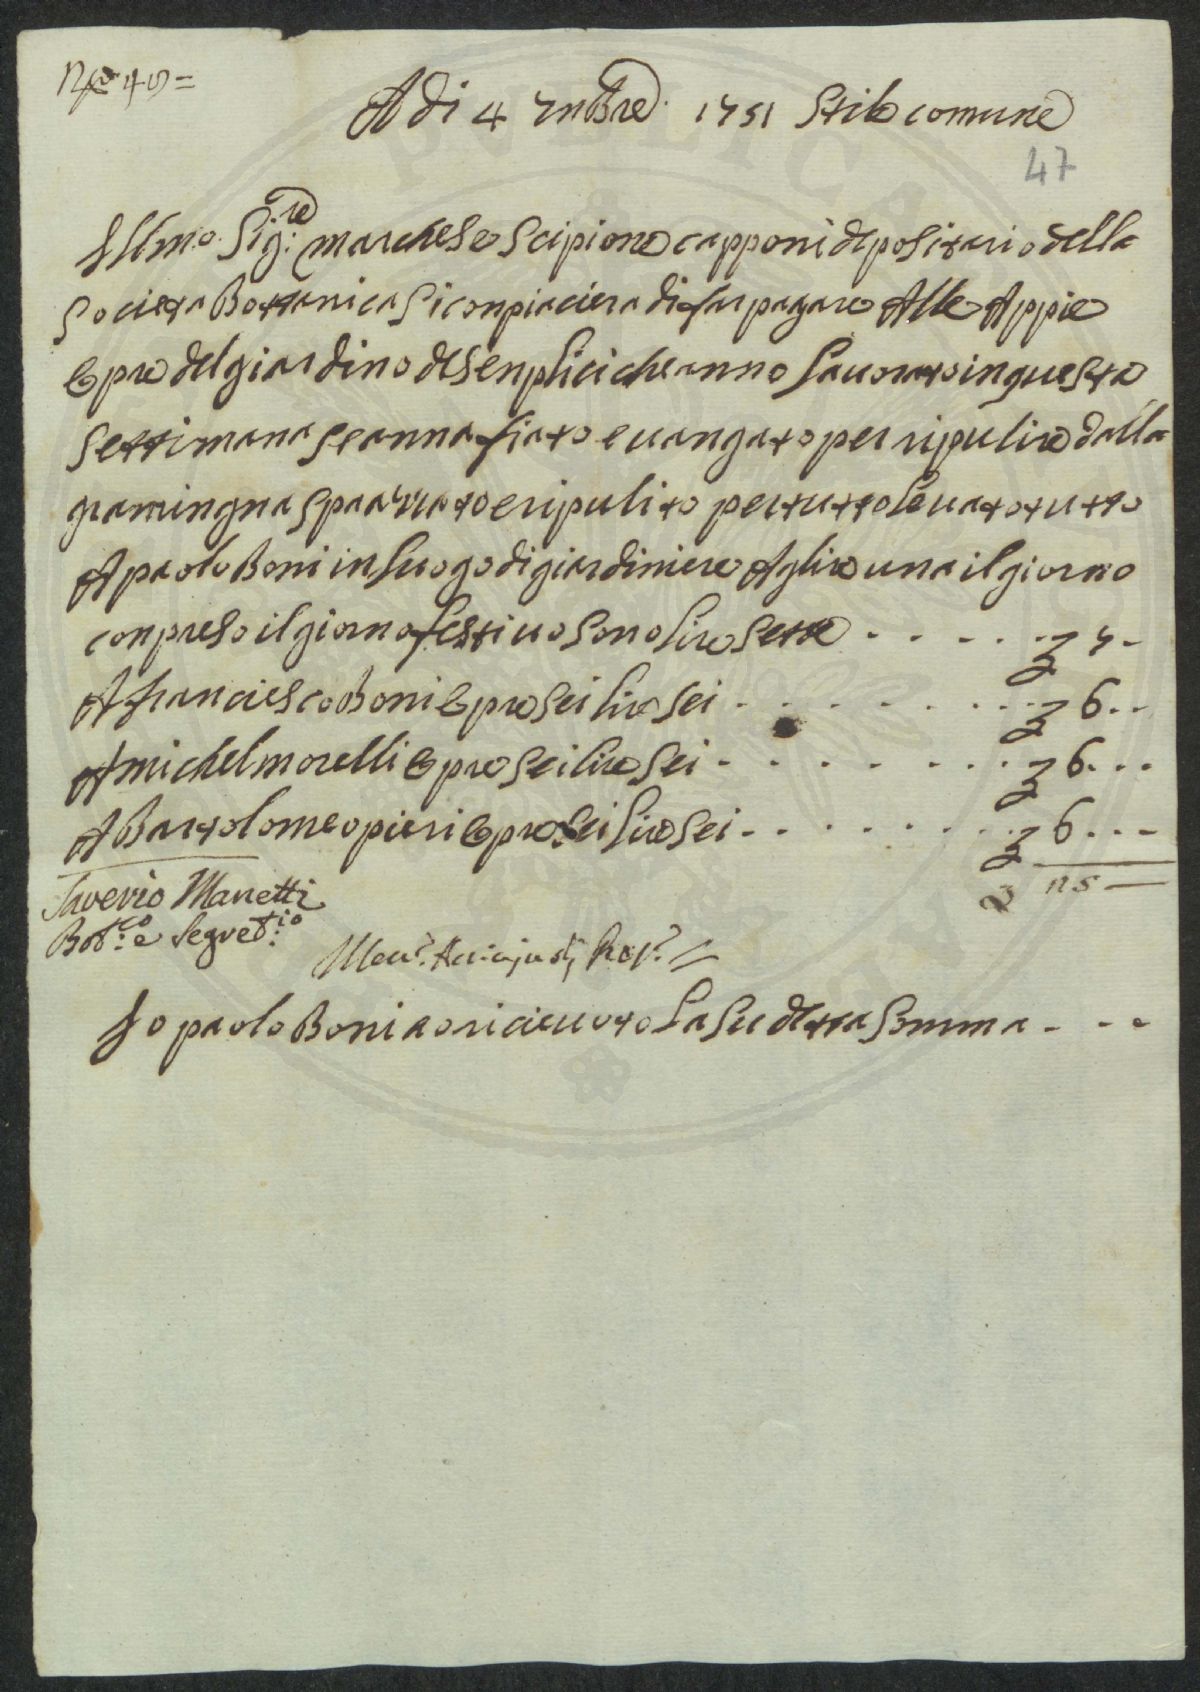 N.ro 49 =
A di 4 7mbre 1751 Stile comune
47
Illmo. Sig:re marchese Scipione capponi depositario della
Societa Bottanica Si conpiaciera di far pagare Alle Appie
Opre del giardino de Senplici che anno Lauorato in questa
Settimana Se anna fiato e uangato per ripulire dalla
gramingna Spaazzato e ripulito per tutto Leuato tutto
A paolo Boni in Luogo di giardiniere A Lire una il giorno
conpreso il giorno festiuo Sono Lire Sette - - - - - - 7 -
A franciesco Boni Opre Sei Lire Sei - - - - - - 6 - -
A michel morelli Opre Sei Lire Sei - - - - - - 6 - - -
A Bartolomeo pieri Opre Sei Lire Sei - - - - - - 6 - - -
25 —
Saverio Manetti
Bot:co e Segret:io
Io paolo Boni ao riceuuto La Su detta Somma - - -